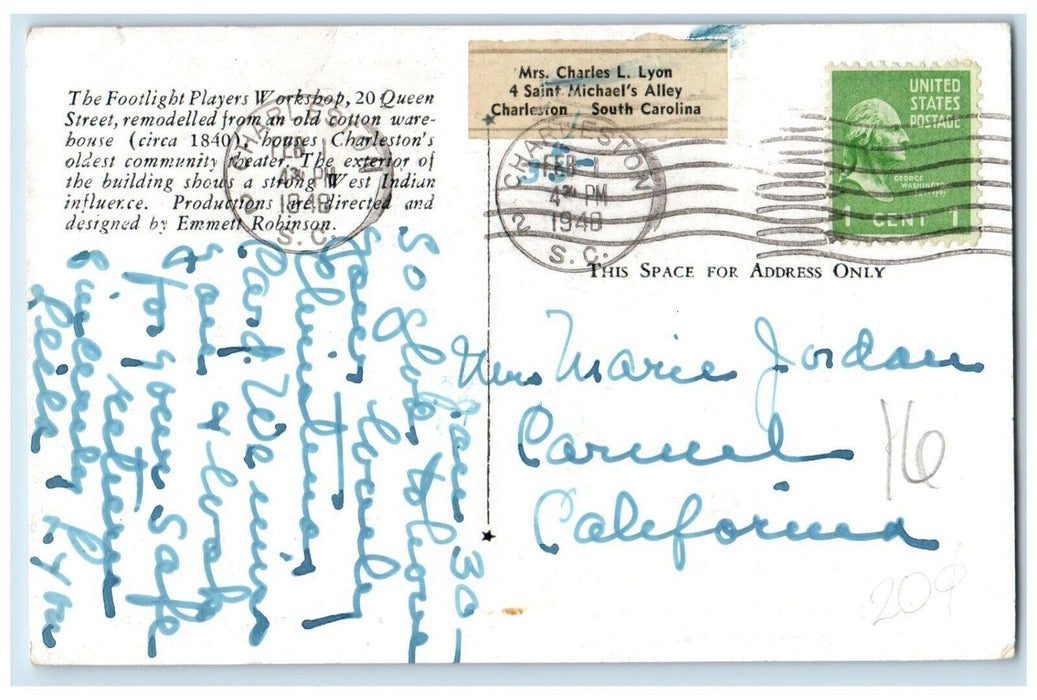 The Footlight Players Workshop, 20 Queen
Street, remodelled from an old cotton ware-
house (circa 1840), houses Charleston's
oldest community theater. The exterior of
the building shows a strong West Indian
influence. Productions are directed and
designed by Emmett Robinson.
Mrs. Charles L. Lyon
4 Saint Michael's Alley
Charleston South Carolina
CHARLESTON
FEB 1
4 PM
1948
S. C.
CHARLESTON
2
FEB 1
4 PM
1948
S. C.
UNITED
STATES
POSTAGE
GEORGE
WASHINGTON
1 CENT 1
THIS SPACE FOR ADDRESS ONLY
Jan 30-
So glad to have
your lovely
Christmas
card. We
and
for your safe
return
Lyon
Mrs Marie Jordan
Carmel
California
16
20¢